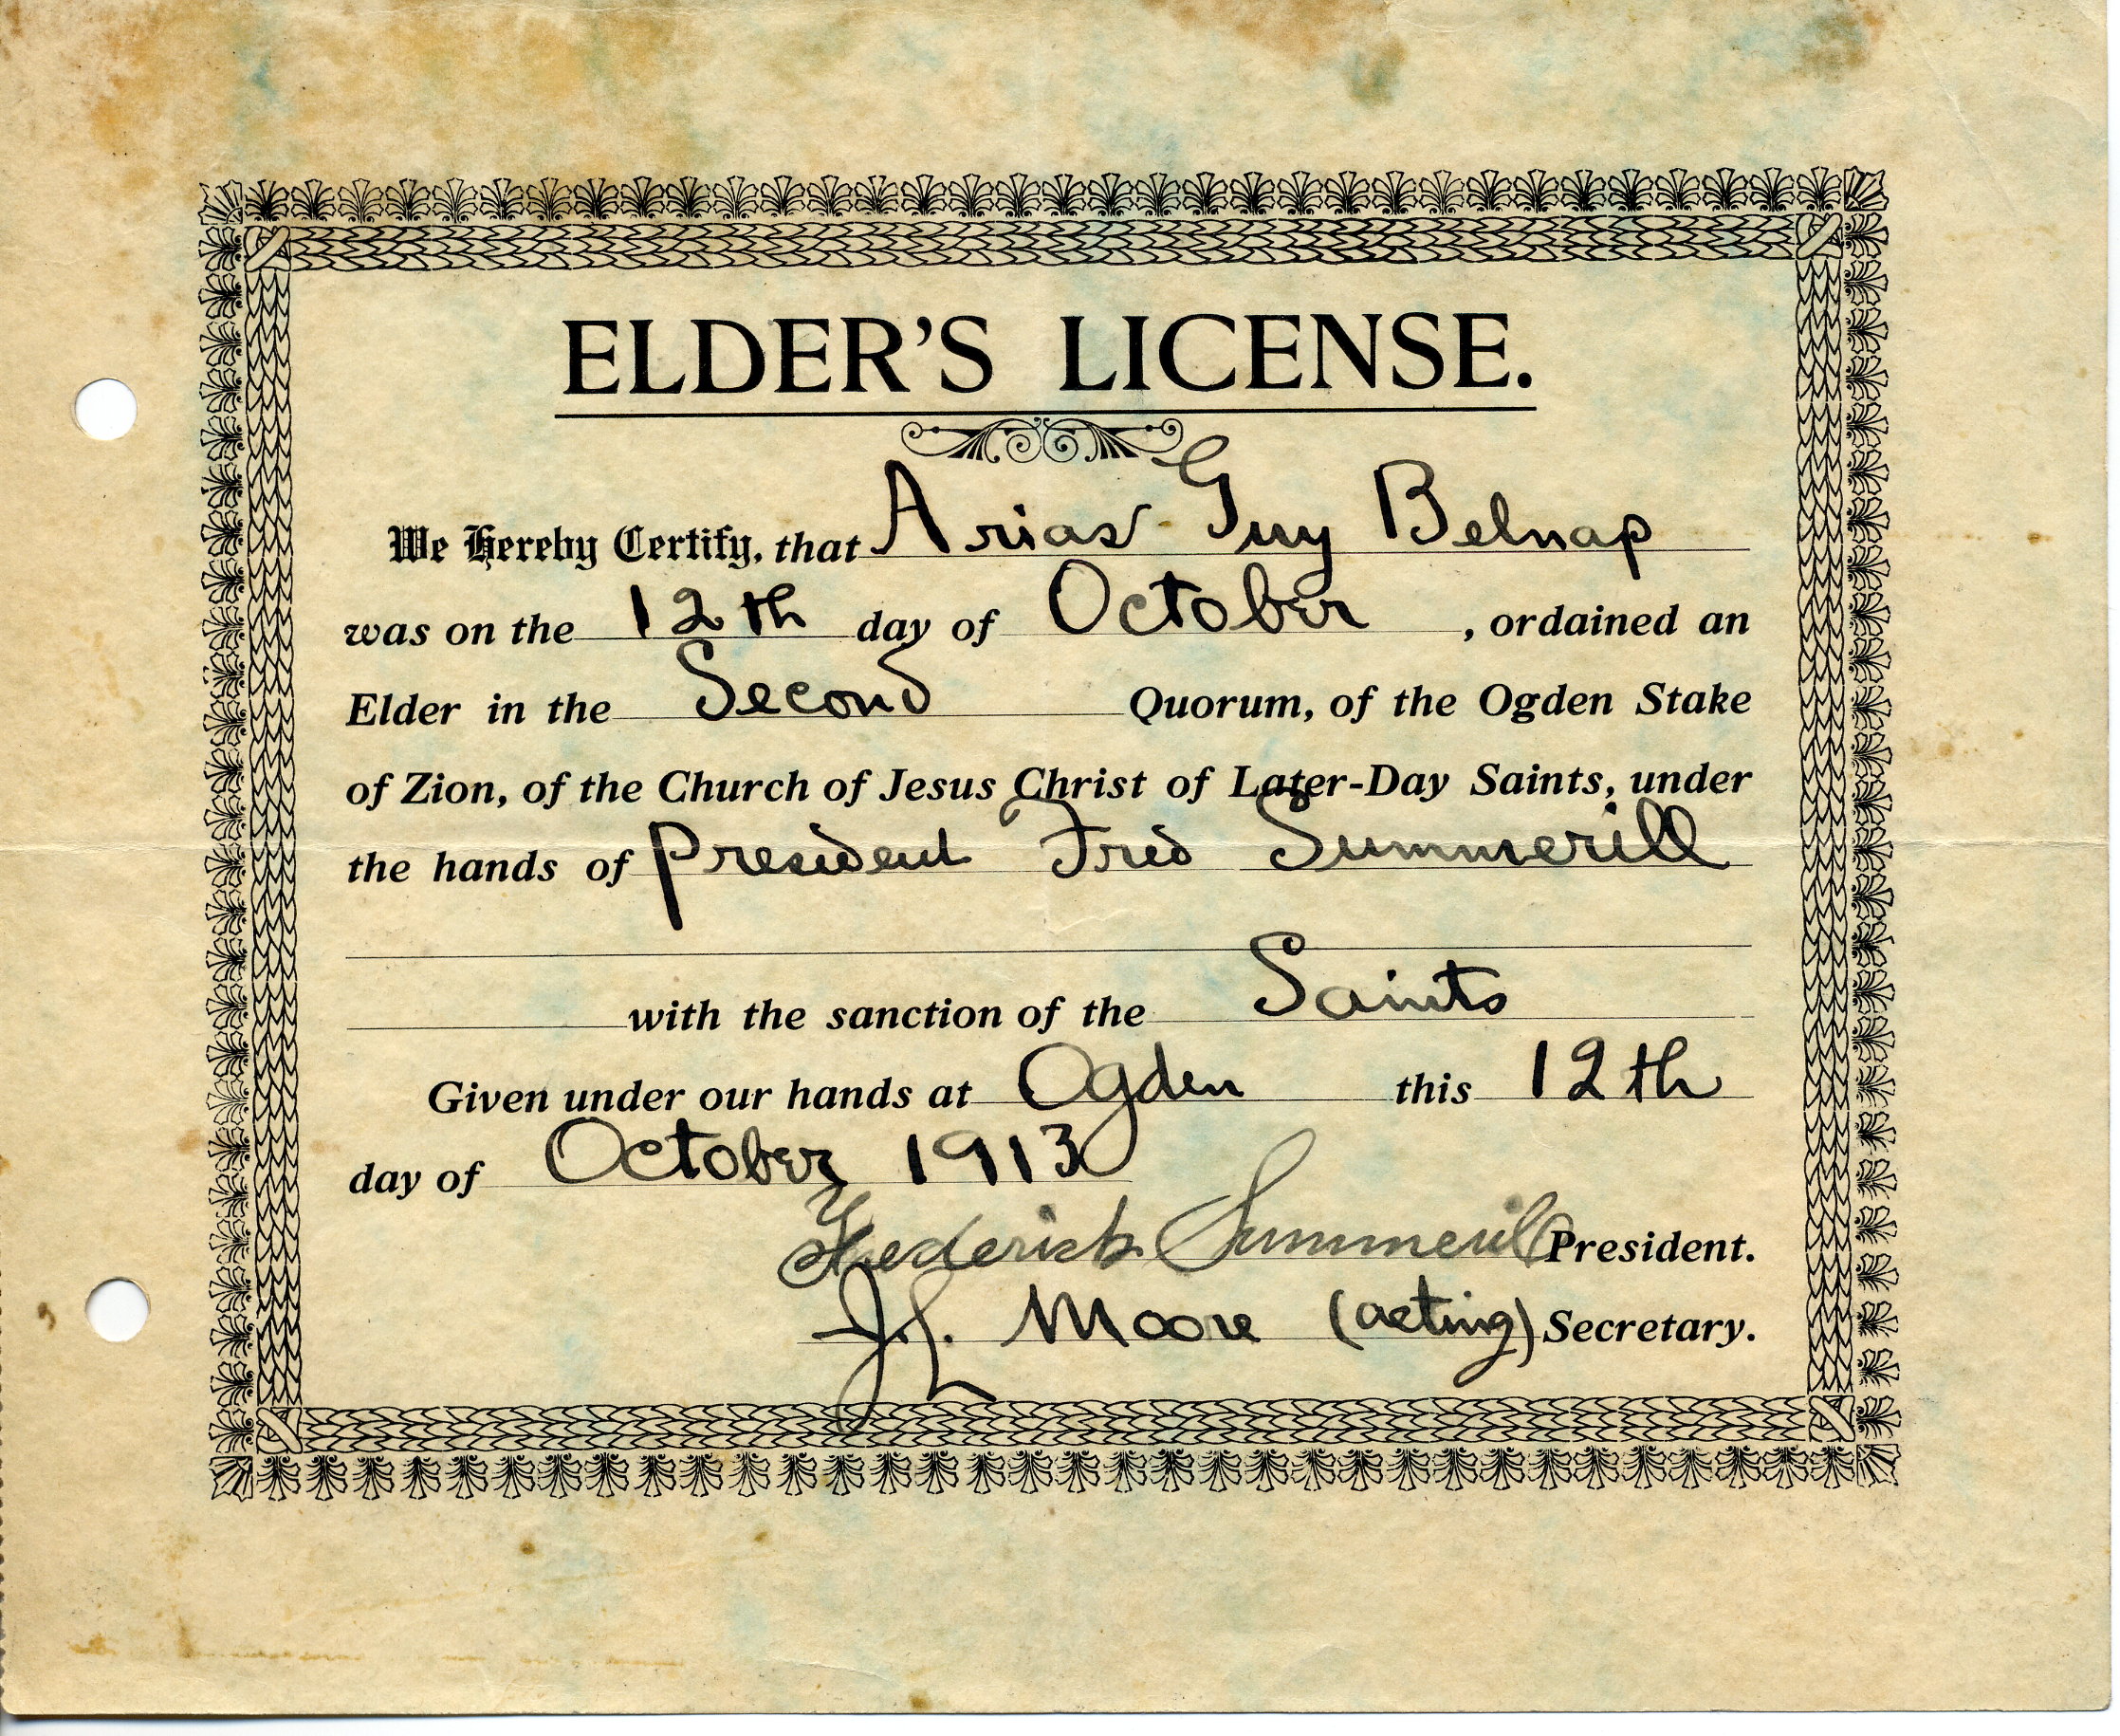 ELDER'S LICENSE.
We Hereby Certify, that Arias Guy Belnap
was on the 12th day of October , ordained an
Elder in the Second Quorum, of the Ogden Stake
of Zion, of the Church of Jesus Christ of Later-Day Saints, under
the hands of President Fred Summerill
with the sanction of the Saints
Given under our hands at Ogden this 12th
day of October 1913
Frederick Summerill President.
J. L. Moore (acting) Secretary.